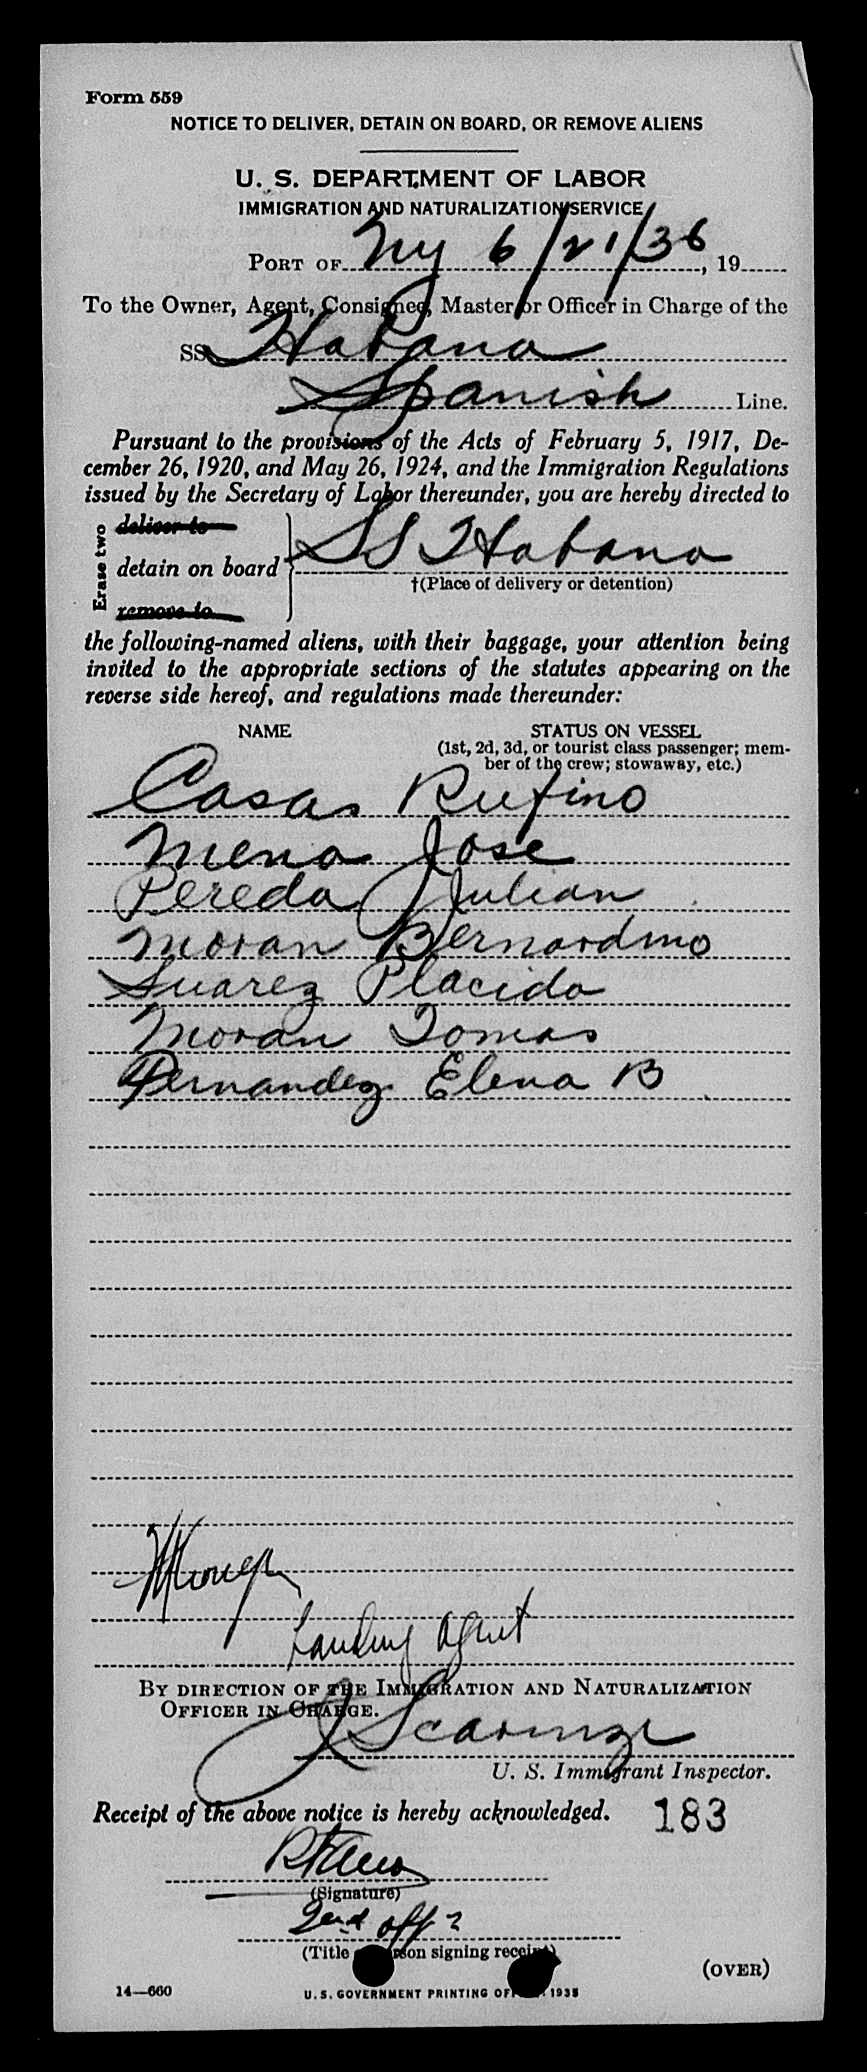 Form 559
NOTICE TO DELIVER, DETAIN ON BOARD, OR REMOVE ALIENS
U. S. DEPARTMENT OF LABOR
IMMIGRATION AND NATURALIZATION SERVICE
PORT OF NY 6/21/36, 19
To the Owner, Agent, Consignee, Master or Officer in Charge of the
SS Habana
Spanish Line.
Pursuant to the provisions of the Acts of February 5, 1917, De-
cember 26, 1920, and May 26, 1924, and the Immigration Regulations
issued by the Secretary of Labor thereunder, you are hereby directed to
Erase two
deliver to
detain on board SS Habana
†(Place of delivery or detention)
remove to
the following-named aliens, with their baggage, your attention being
invited to the appropriate sections of the statutes appearing on the
reverse side hereof, and regulations made thereunder:
NAME STATUS ON VESSEL
(1st, 2d, 3d, or tourist class passenger; mem-
ber of the crew; stowaway, etc.)
Casas Rufino
Mena Jose
Pereda Julian
Moran Bernardino
Suarez Placido
Moran Tomas
Fernandez Elena B
Landing Agent
BY DIRECTION OF THE IMMIGRATION AND NATURALIZATION
OFFICER IN CHARGE.
J Scarinzi
U. S. Immigrant Inspector.
Receipt of the above notice is hereby acknowledged. 183
(Signature)
2nd off
(Title person signing receipt)
(OVER)
14—660
U. S. GOVERNMENT PRINTING 1935